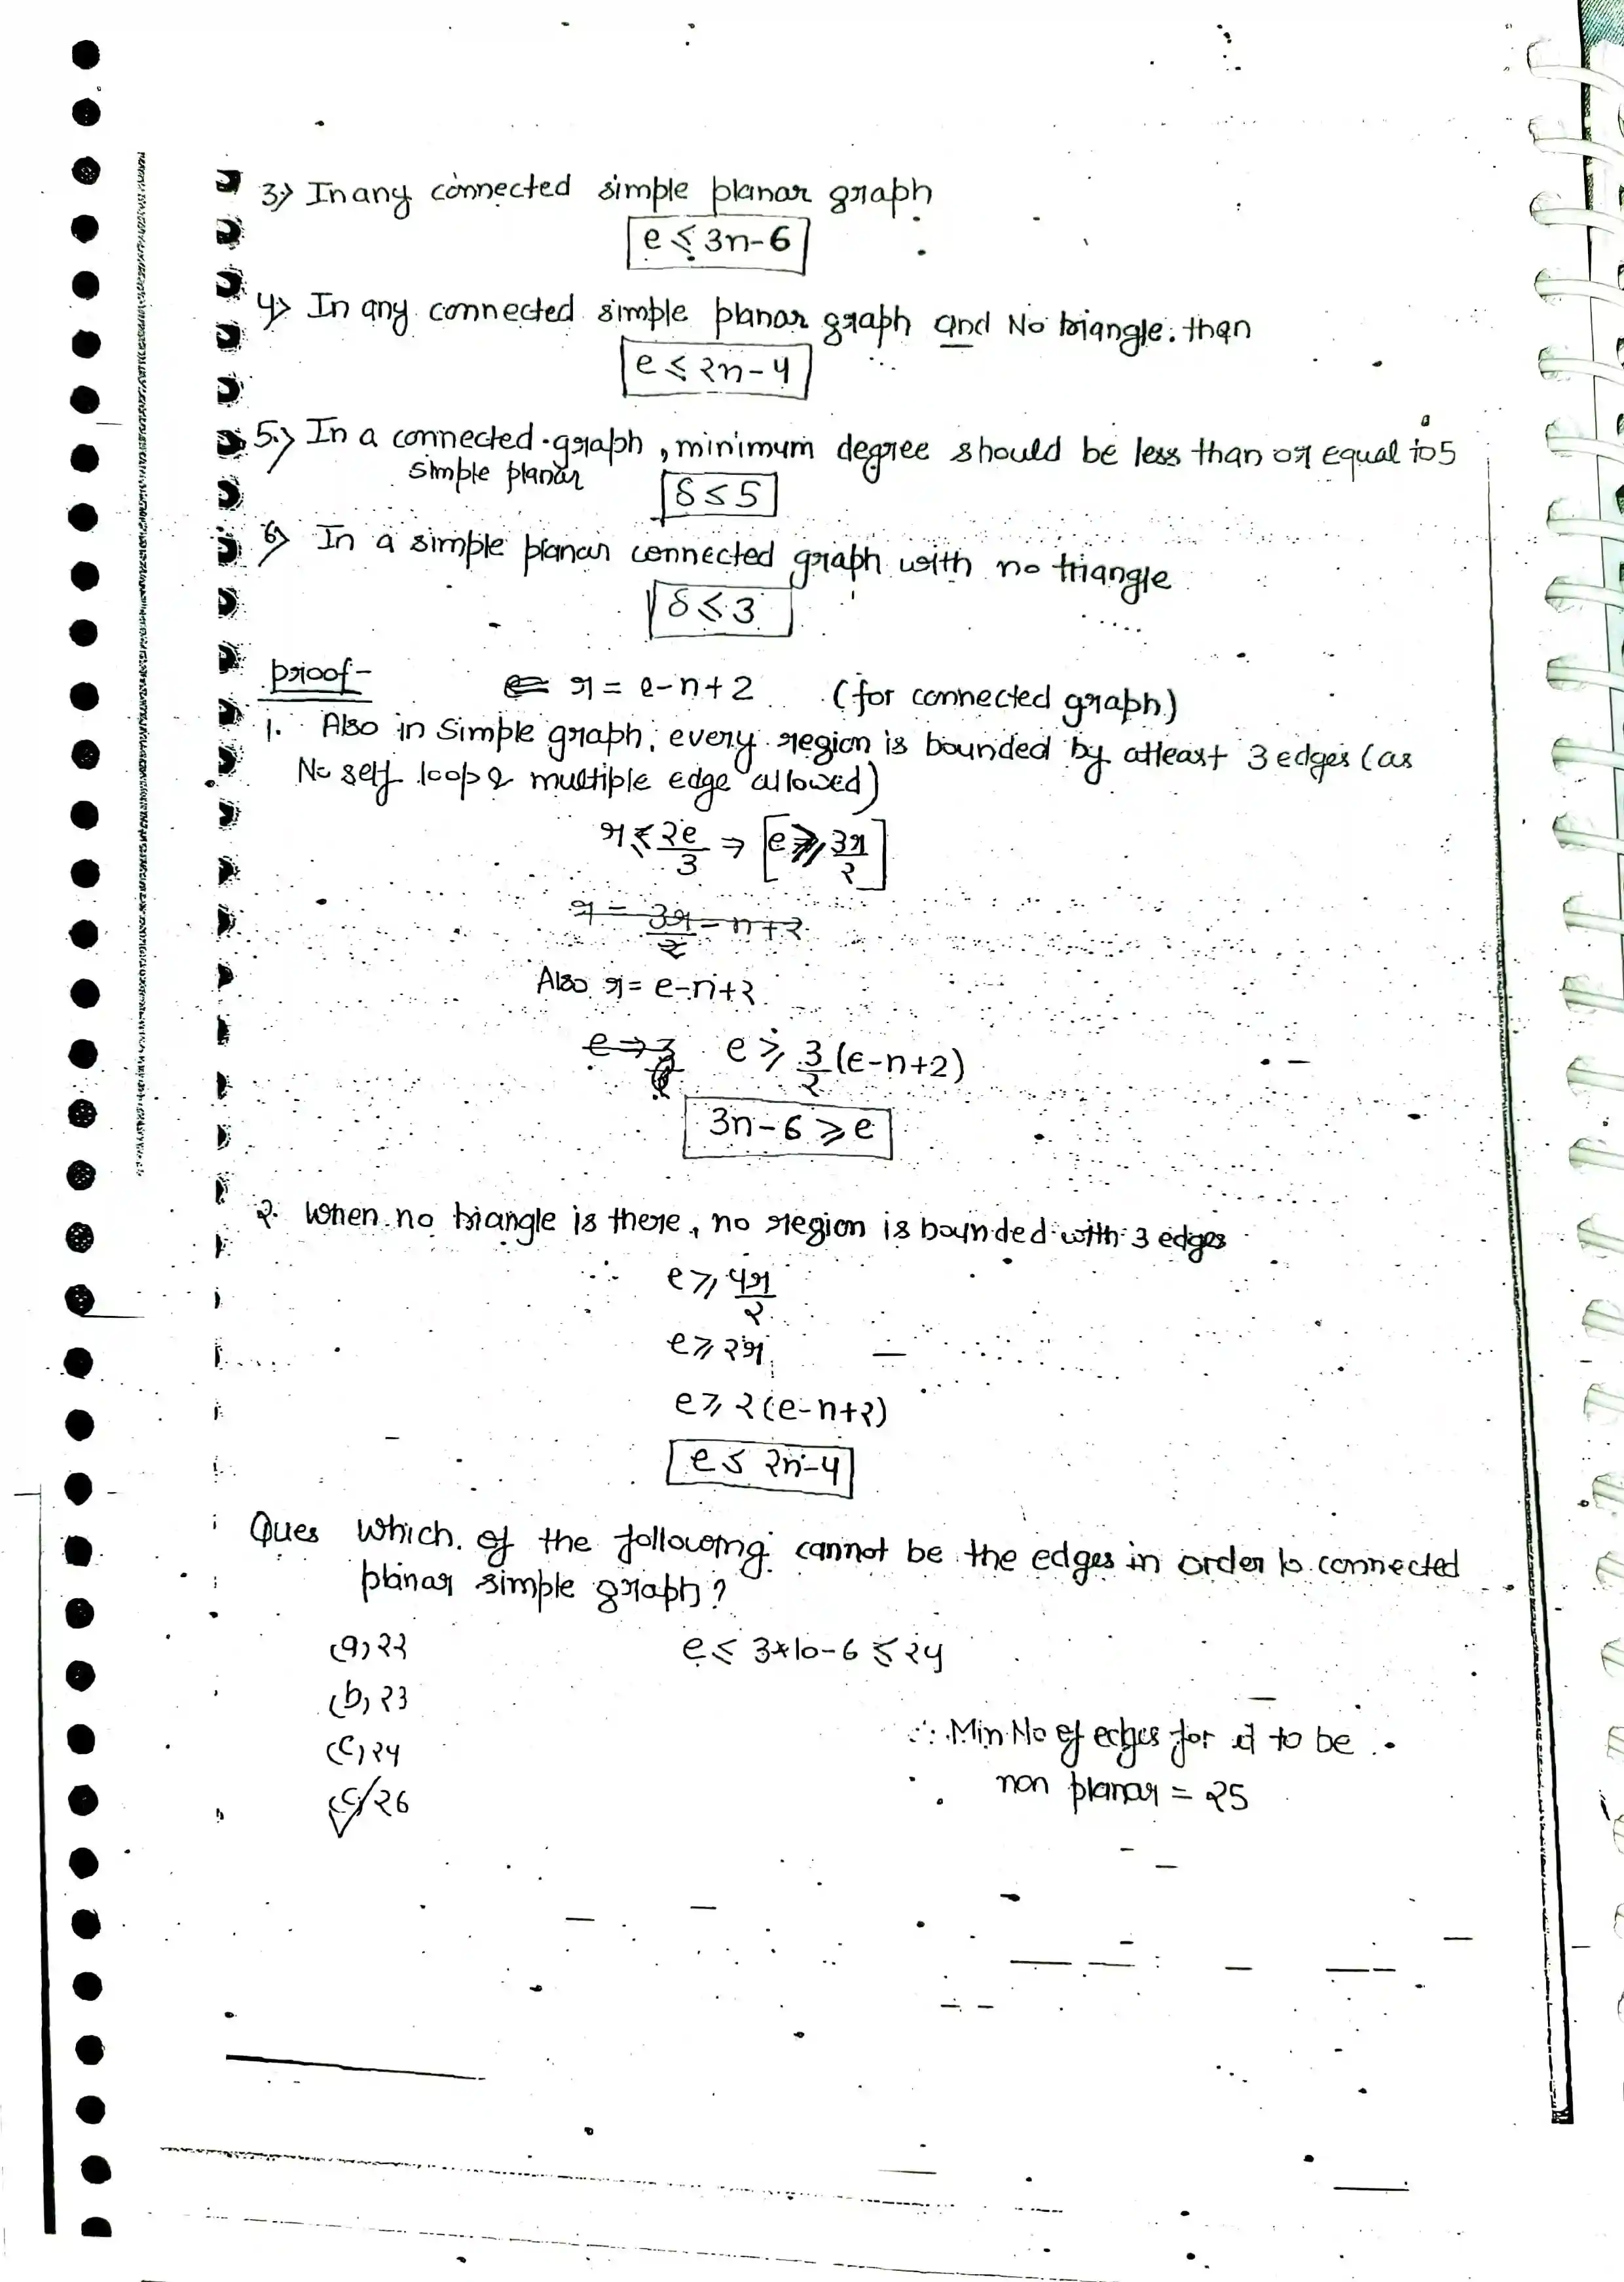 3) In any connected simple planar graph
e ≤ 3n-6
4) In any connected simple planar graph and No triangle. than
e ≤ 2n-4
5.) In a connected graph, minimum degree should be less than or equal to 5
simple planar
δ ≤ 5
6) In a simple planar connected graph with no triangle
δ ≤ 3
proof-
r = e-n+2 (for connected graph)
1. Also in simple graph, every region is bounded by atleast 3 edges (as
No self loop & multiple edge allowed)
r ≤ 2e/3 ⇒ [e ≥ 3r/2]
r = 3r/2 - n+2
Also r = e-n+2
e ≥ 3/2 (e-n+2)
3n-6 ≥ e
2. When no triangle is there, no region is bounded with 3 edges
∴ e ≥ 4r/2
e ≥ 2r
e ≥ 2(e-n+2)
e ≤ 2n-4
Ques Which of the following cannot be the edges in order 10 connected
planar simple graph?
(a) 22 e ≤ 3*10-6 ≤ 24
(b) 23
(c) 24
∴ Min No of edges for it to be
non planar = 25
26